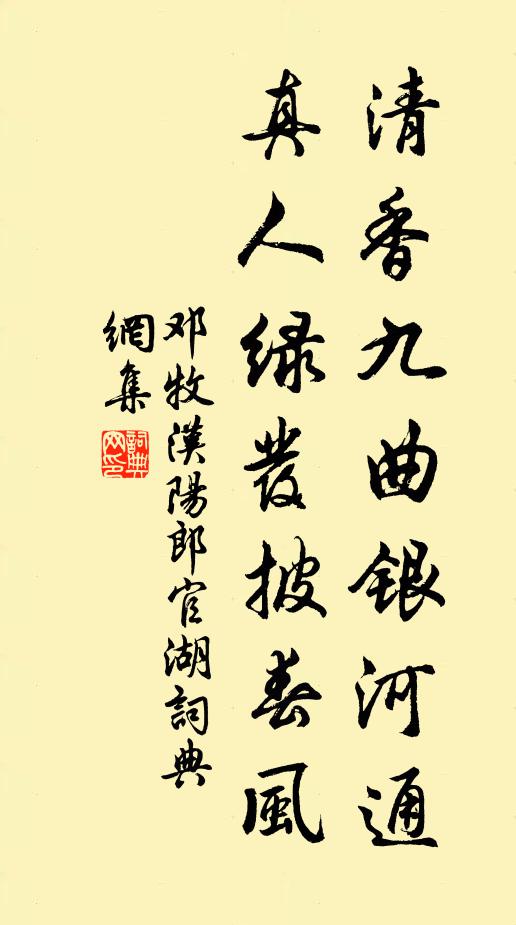 清香九曲銀河通
真人緑發披春風
邓牧漢陽郎官湖詞典
網集
詞典
网印